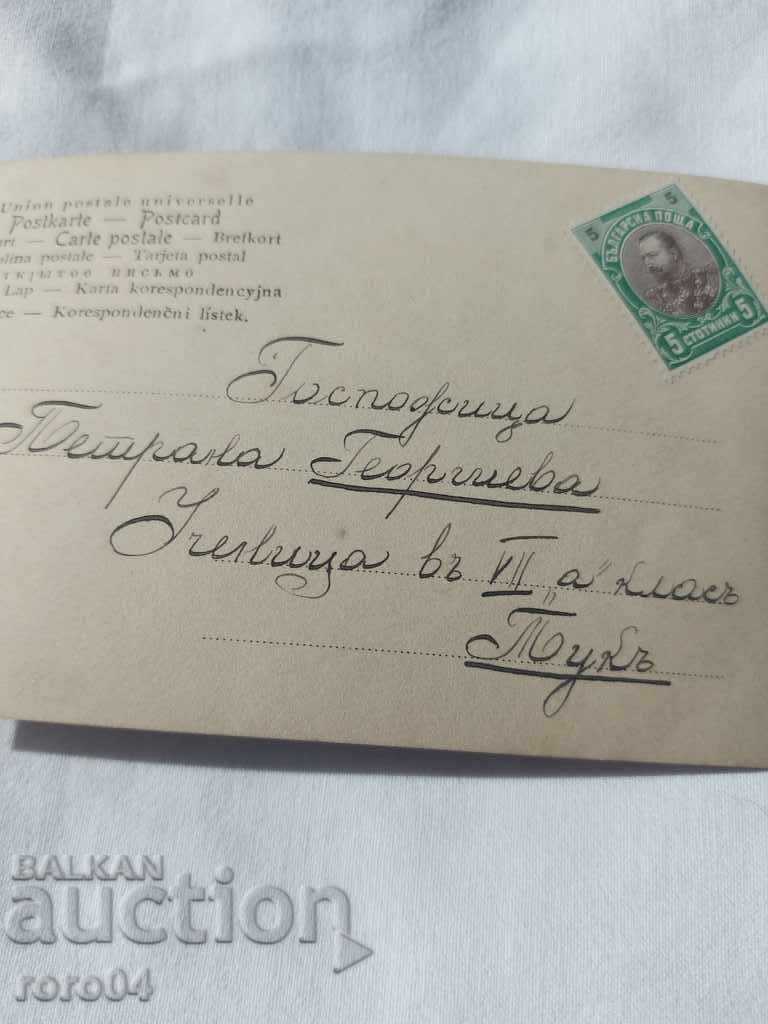 Union postale universelle
Postkarte — Postcard
— Carte postale — Brefkort
postale — Tarjeta postal
письмо
Lap — Karta korespondencyjna
— Korespondenčni lístek.
5 5
БЪЛГАРСКА ПОЩА
5 СТОТИНКИ 5
Господжица
Петрана Георгиева
Ученица въ VII „а" класъ
Тукъ
BALKAN
auction
roro04